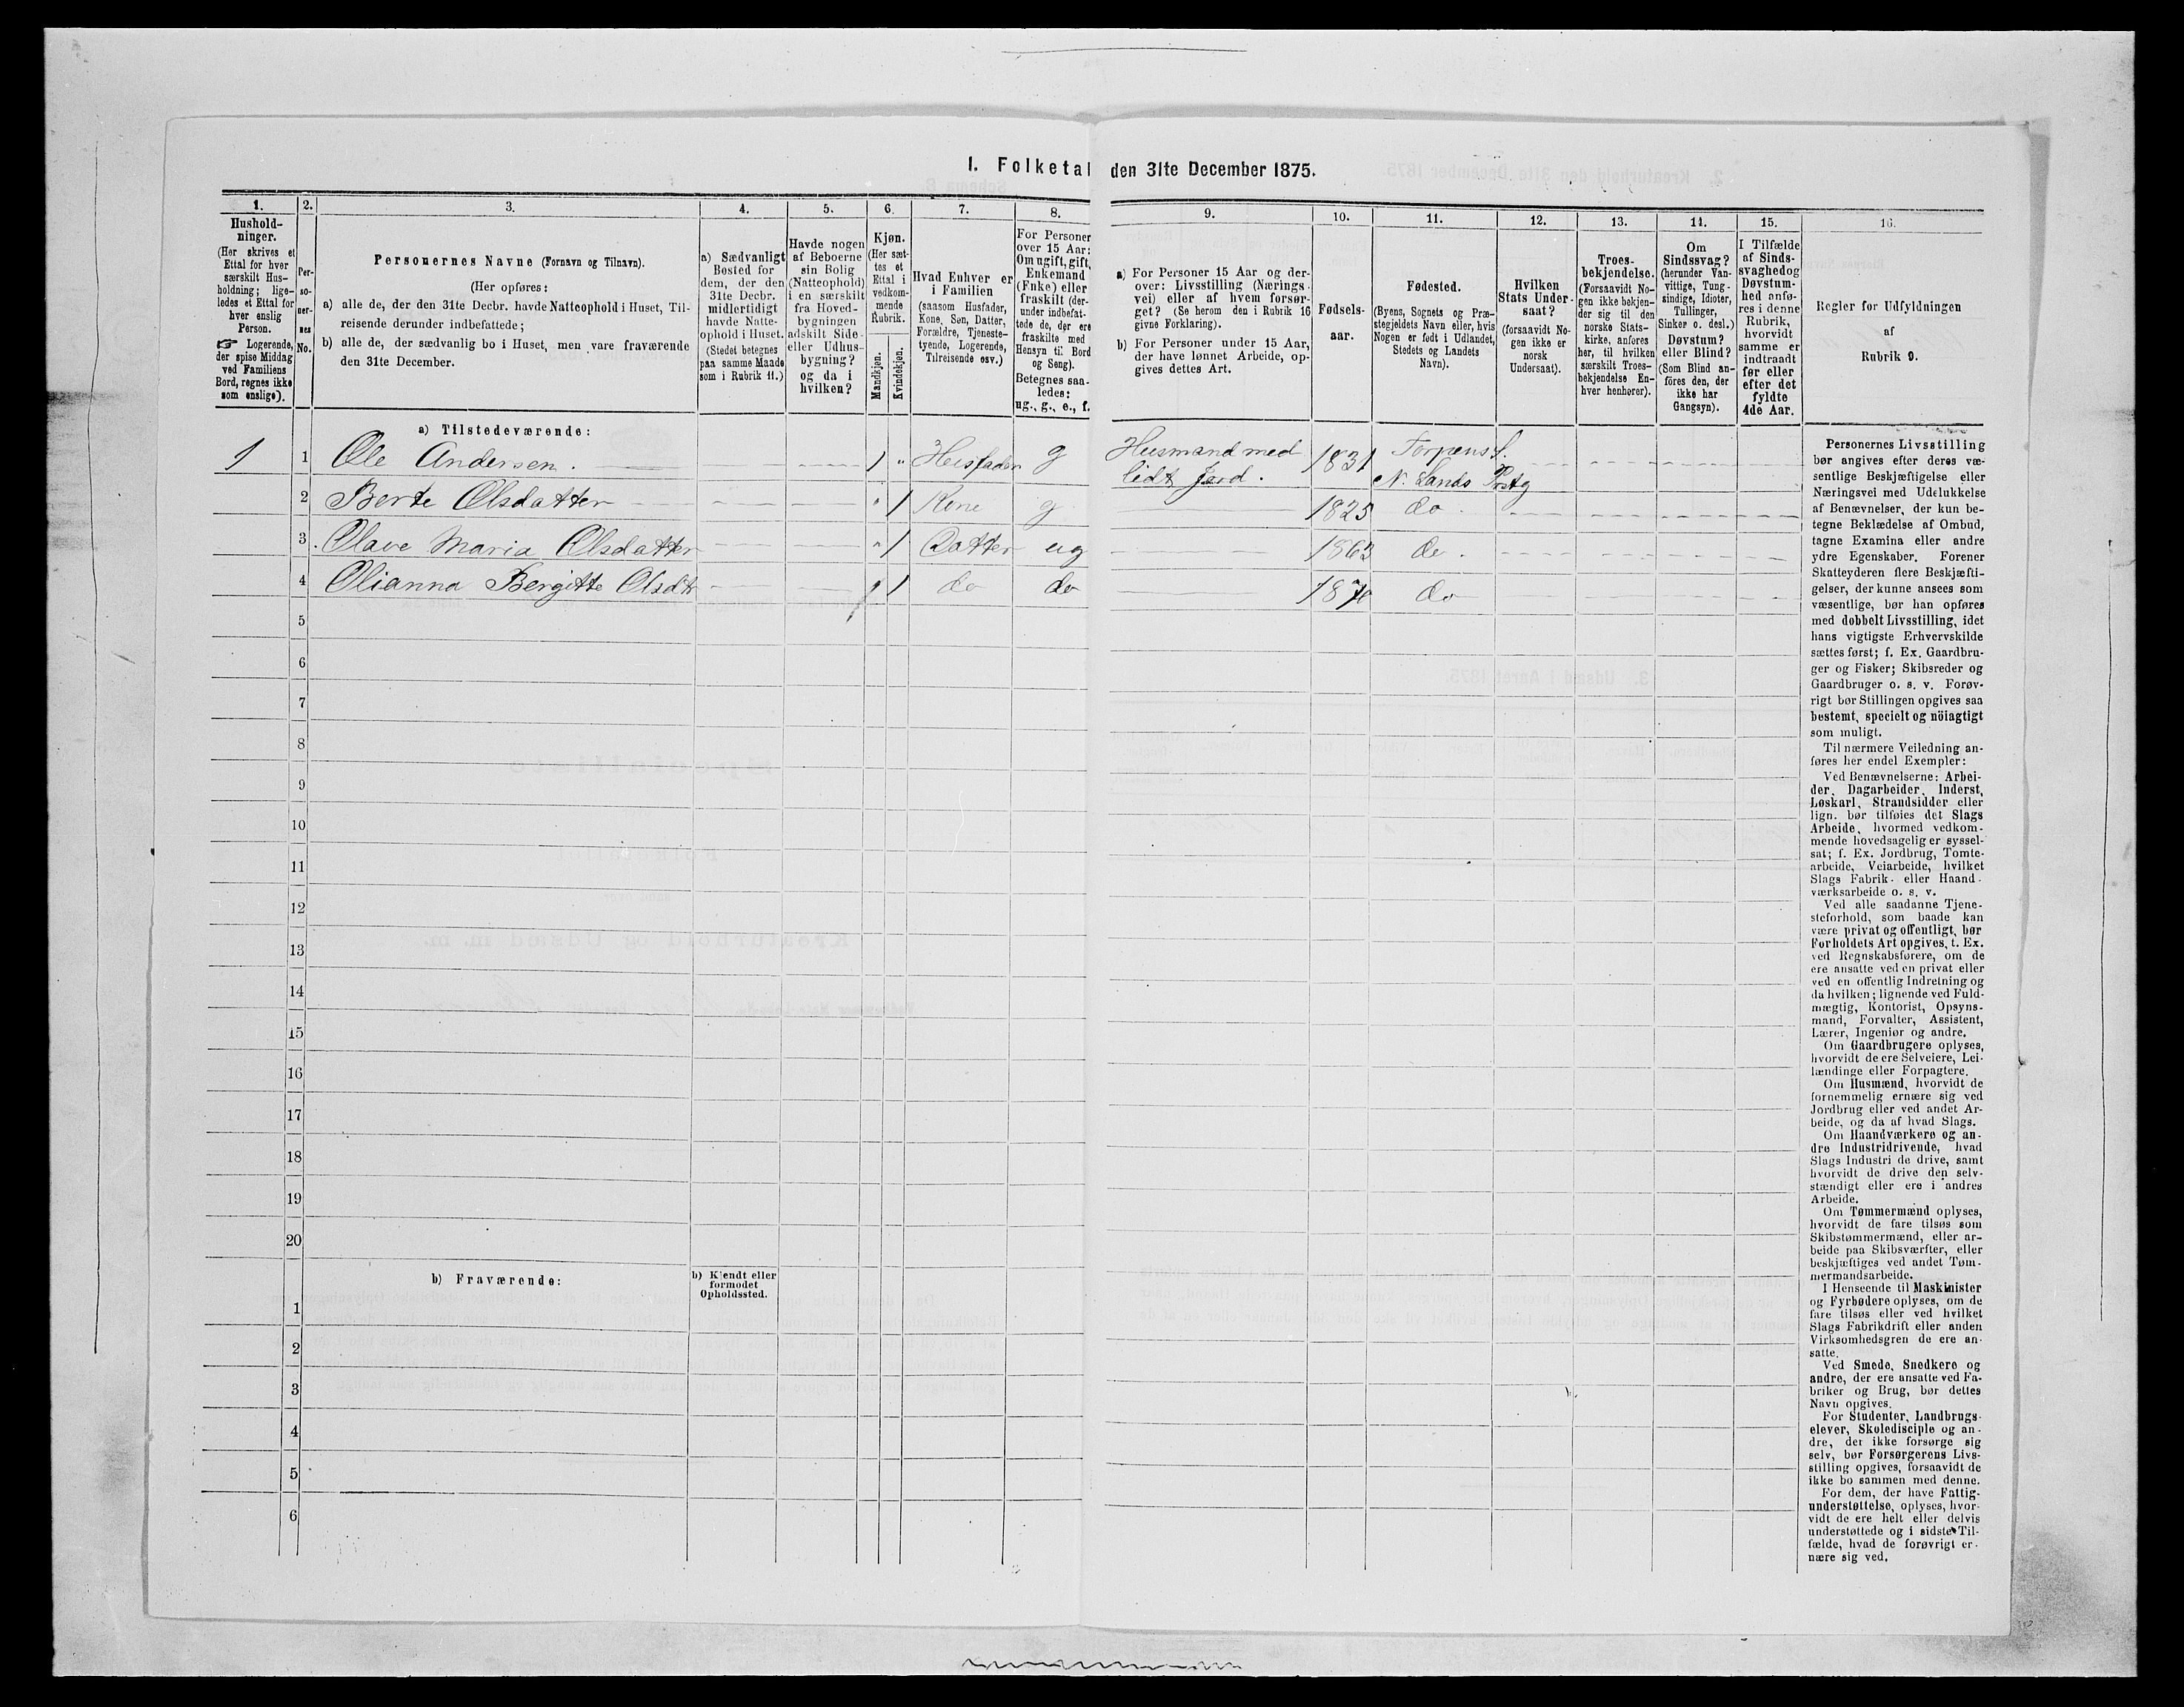 I. Folketal den 31te December 1875.
1.
2.
3.
4.
5.
6.
7.
8.
9.
10.
11.
12.
13.
14.
15.
16.
Hushold-
ninger.
(Her skrives et
Ettal for hver
særskilt Hus-
holdning; lige-
ledes et Ettal for
hver enslig
Person.
☞ Logerende,
der spise Middag
ved Familiens
Bord, regnes ikke
som enslige).
Per-
so-
ner-
nes
No.
Personernes Navne (Fornavn og Tilnavn).
(Her opføres:
a) alle de, der den 31te Decbr. havde Natteophold i Huset, Til-
reisende derunder indbefattede;
b) alle de, der sædvanlig bo i Huset, men vare fraværende
den 31te December.
a) Sædvanligt
Bosted for
dem, der den
31te Decbr.
midlertidigt
havde Natte-
ophold i Huset.
(Stedet betegnes
paa samme Maade
som i Rubrik 11.)
Havde nogen
af Beboerne
sin Bolig
(Natteophold)
i en særskilt
fra Hoved-
bygningen
adskilt Side-
eller Udhus-
bygning?
og da i
hvilken?
Kjøn.
(Her sæt-
tes et
Ettal i
vedkom-
mende
Rubrik.
Mandkjøn.
Kvindekjøn.
Hvad Enhver er
i Familien
(saasom Husfader,
Kone, Søn, Datter,
Forældre, Tjeneste-
tyende, Logerende,
Tilreisende osv.)
For Personer
over 15 Aar:
Om ugift, gift,
Enkemand
(Enke) eller
fraskilt (der-
under indbefat-
tede de, der ere
fraskilte med
Hensyn til Bord
og Seng).
Betegnes saa-
ledes:
ug., g., e., f.
a) For Personer 15 Aar og der-
over: Livsstilling (Nærings-
vei) eller af hvem forsør-
get? (Se herom den i Rubrik 16
givne Forklaring).
b) For Personer under 15 Aar,
der have lønnet Arbeide, op-
gives dettes Art.
Fødsels-
aar.
Fødested.
(Byens, Sognets og Præ-
stegjeldets Navn eller, hvis
Nogen er født i Udlandet,
Stedets og Landets
Navn).
Hvilken
Stats Under-
saat?
(forsaavidt No-
gen ikke er
norsk
Undersaat).
Troes-
bekjendelse.
(Forsaavidt No-
gen ikke bekjen-
der sig til den
norske Stats-
kirke, anføres
her, til hvilken
særskilt Troes-
bekjendelse En-
hver henhører).
Om
Sindssvag?
(herunder Van-
vittige, Tung-
sindige, Idioter,
Tullinger,
Sinker o. desl.)
Døvstum?
eller Blind?
(Som Blind an-
føres den, der
ikke har
Gangsyn).
I Tilfælde
af Sinds-
svaghed og
Døvstum-
hed anfø-
res i denne
Rubrik,
hvorvidt
samme er
indtraadt
før eller
efter det
fyldte
4de Aar.
Regler for Udfyldningen
af
Rubrik 9.
a) Tilstedeværende:
1 1 Ole Andersen. 1 " Husfader g Husmand med lidt Jord. 1831 Torpens S. N. Lands Prstg
2 Berte Olsdatter " 1 Kone g 1825 do.
3 Olave Maria Olsdatter " 1 Datter ug 1863 do.
4 Olianna Bergitte Olsdtr 1 do do 1870 do
5
6
7
8
9
10
11
12
13
14
15
16
17
18
19
20
b) Fraværende:
b) Kjendt eller
formodet
Opholdssted.
1
2
3
4
5
6
Personernes Livsstilling
bør angives efter deres væ-
sentlige Beskjæftigelse eller
Næringsvei med Udelukkelse
af Benævnelser, der kun be-
tegne Beklædelse af Ombud,
tagne Examina eller andre
ydre Egenskaber. Forener
Skatteyderen flere Beskjæfti-
gelser, der kunne ansees som
væsentlige, bør han opføres
med dobbelt Livsstilling, idet
hans vigtigste Erhvervskilde
sættes først; f. Ex. Gaardbru-
ger og Fisker; Skibsreder og
Gaardbruger o. s. v. Forøv-
rigt bør Stillingen opgives saa
bestemt, specielt og nöiagtigt
som muligt.
Til nærmere Veiledning an-
føres her endel Exempler:
Ved Benævnelserne: Arbei-
der, Dagarbeider, Inderst,
Løskarl, Strandsidder eller
lign. bør tilføies det Slags
Arbeide, hvormed vedkom-
mende hovedsagelig er syssel-
sat; f. Ex. Jordbrug, Tomte-
arbeide, Veiarbeide, hvilket
Slags Fabrik- eller Haand-
værksarbeide o. s. v.
Ved alle saadanne Tjene-
steforhold, som baade kan
være privat og offentligt, bør
Forholdets Art opgives, t. Ex.
ved Regnskabsførere, om de
ere ansatte ved en privat eller
ved en offentlig Indretning og
da hvilken; lignende ved Fuld-
mægtig, Kontorist, Opsyns-
mand, Forvalter, Assistent,
Lærer, Ingeniør og andre.
Om Gaardbrugere oplyses,
hvorvidt de ere Selveiere, Lei-
lændinge eller Forpagtere.
Om Husmænd, hvorvidt de
fornemmelig ernære sig ved
Jordbrug eller ved andet Ar-
beide, og da af hvad Slags.
Om Haandværkere og an-
dre Industridrivende, hvad
Slags Industri de drive, samt
hvorvidt de drive den selv-
stændigt eller ere i andres
Arbeide.
Om Tømmermænd oplyses,
hvorvidt de fare tilsøs som
Skibstømmermænd, eller ar-
beide paa Skibsværfter, eller
beskjæftiges ved andet Tøm-
mermandsarbeide.
I Henseende til Maskinister
og Fyrbødere oplyses, om de
fare tilsøs eller ved hvilket
Slags Fabrikdrift eller anden
Virksomhedsgren de ere an-
satte.
Ved Smede, Snedkere og
andre, der ere ansatte ved Fa-
briker og Brug, bør dettes
Navn opgives.
For Studenter, Landbrugs-
elever, Skoledisciple og an-
dre, der ikke forsørge sig
selv, bør Forsørgerens Livs-
stilling opgives, forsaavidt de
ikke bo sammen med denne.
For dem, der have Fattig-
understøttelse, oplyses, hvor-
vidt de ere helt eller delvis
understøttede og i sidste Til-
fælde, hvad de forøvrigt er-
nære sig ved.